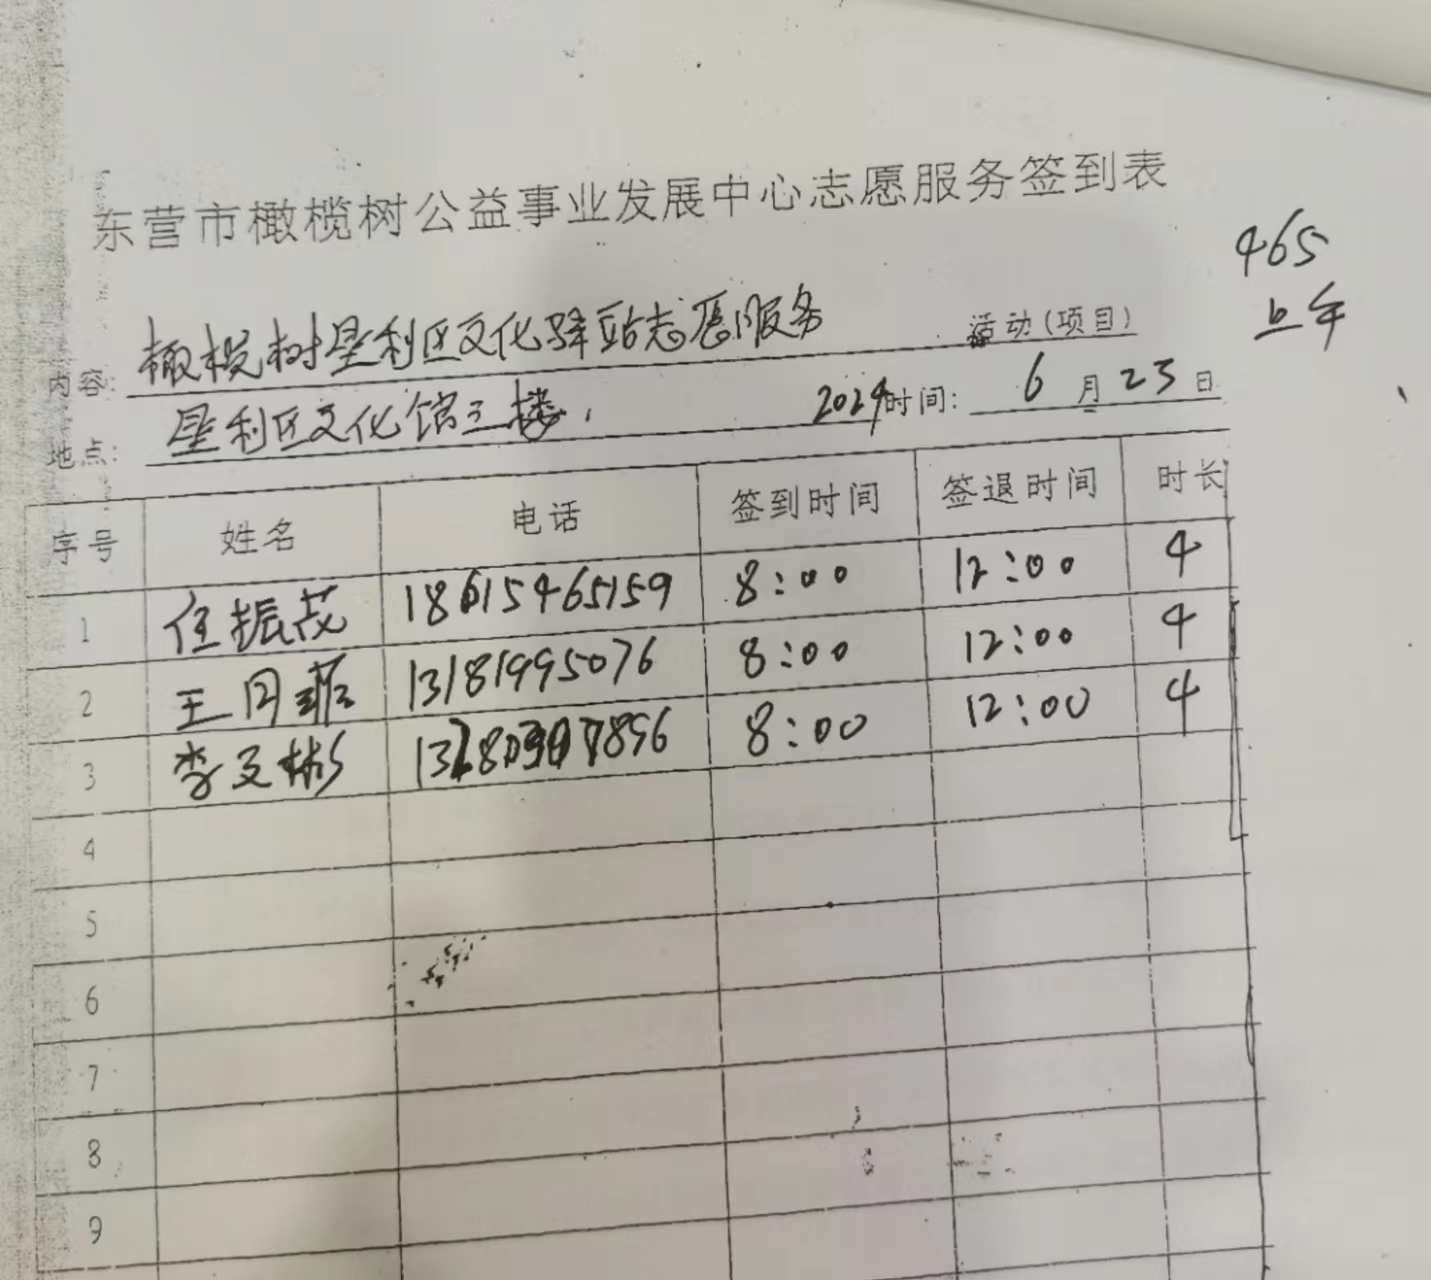 东营市橄榄树公益事业发展中心志愿服务签到表
465
上午
内容: 橄榄树垦利区文化驿站志愿服务 活动(项目)
地点: 垦利区文化馆三楼. 2024时间: 6月23日
序号 姓名 电话 签到时间 签退时间 时长
1 任振茂 18615465159 8:00 12:00 4
2 王丹菲 13181995076 8:00 12:00 4
3 李文彬 8:00 12:00 4
4
5
6
7
8
9